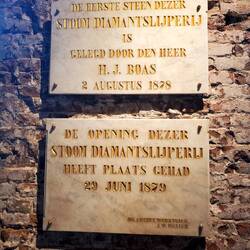 DE EERSTE STEEN DEZER
STOOM DIAMANTSLIJPERIJ
IS
GELEGD DOOR DEN HEER
H. J. BOAS
2 AUGUSTUS 1878
DE OPENING DEZER
STOOM DIAMANTSLIJPERIJ
HEEFT PLAATS GEHAD
29 JUNI 1879